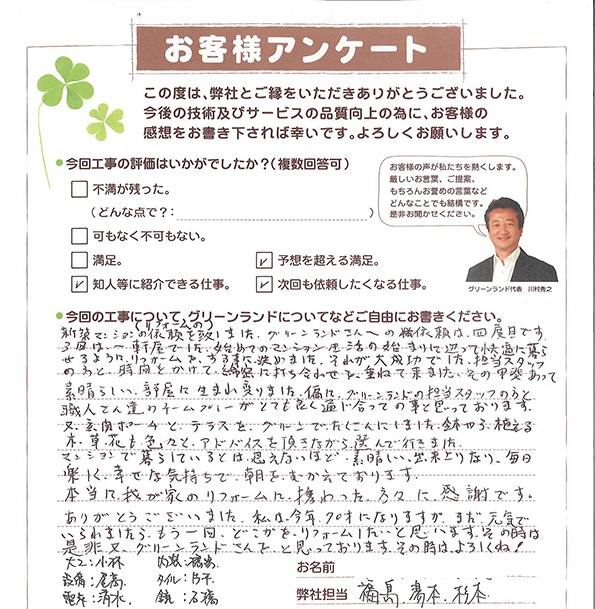 お客様アンケート
この度は、弊社とご縁をいただきありがとうございました。
今後の技術及びサービスの品質向上の為に、お客様の
感想をお書き下されば幸いです。よろしくお願いします。
今回工事の評価はいかがでしたか？（複数回答可）
不満が残った。
（どんな点で？：　）
可もなく不可もない。
満足。
予想を超える満足。
知人等に紹介できる仕事。
次回も依頼したくなる仕事。
お客様の声が私たちを熱くします。
厳しいお言葉、ご提案、
もちろんお誉めの言葉など
どんなことでも結構です。
是非お聞かせください。
グリーンランド代表　川村秀之
今回の工事について，グリーンランドについてなどご自由にお書きください。
新築マンションの(リフォームの)依頼を致しました。グリーンランドさんへの依頼は四度目です。
3度は、一軒屋でした。始めてのマンション生活の始まりに迫って快適に暮ら
せるようにリフォームをする事に決めました。それが大成功でした。担当スタッフ
のうと、時間をかけて綿密に打ち合わせを重ねて来ました。その甲斐あって
素晴らしい、部屋に生まれ変りました。偏に、グリーンランドの担当スタッフの方と
職人さん達のチームプレーがとても良く通じ合っての事と思っております。
又、玄関ポーチと、テラスを、グリーンでたくさんにしました。鉢やら、植える
木、草花も色々と、アドバイスを頂きながら選んで行きました。
マンションで暮らしているとは、思えないほど、素晴しい、出来上りなり、毎日
楽しく、幸せな気持ちで、朝をむかえております。
本当に我が家のリフォームに、携わった、方々に感謝です。
ありがとうございました。私は、今年、70才になりますが、まだ元気で
いられましたら、もう一回、どこかをリフォームしたいと思います。その時は
是非又、グリーンランドさんを、と思っております。その時は、よろしくね！
大工：小林
内装：
設備：尾高
タイル：
電気：清水
鏡：石橋
お名前
弊社担当
福島、湯本、杉本